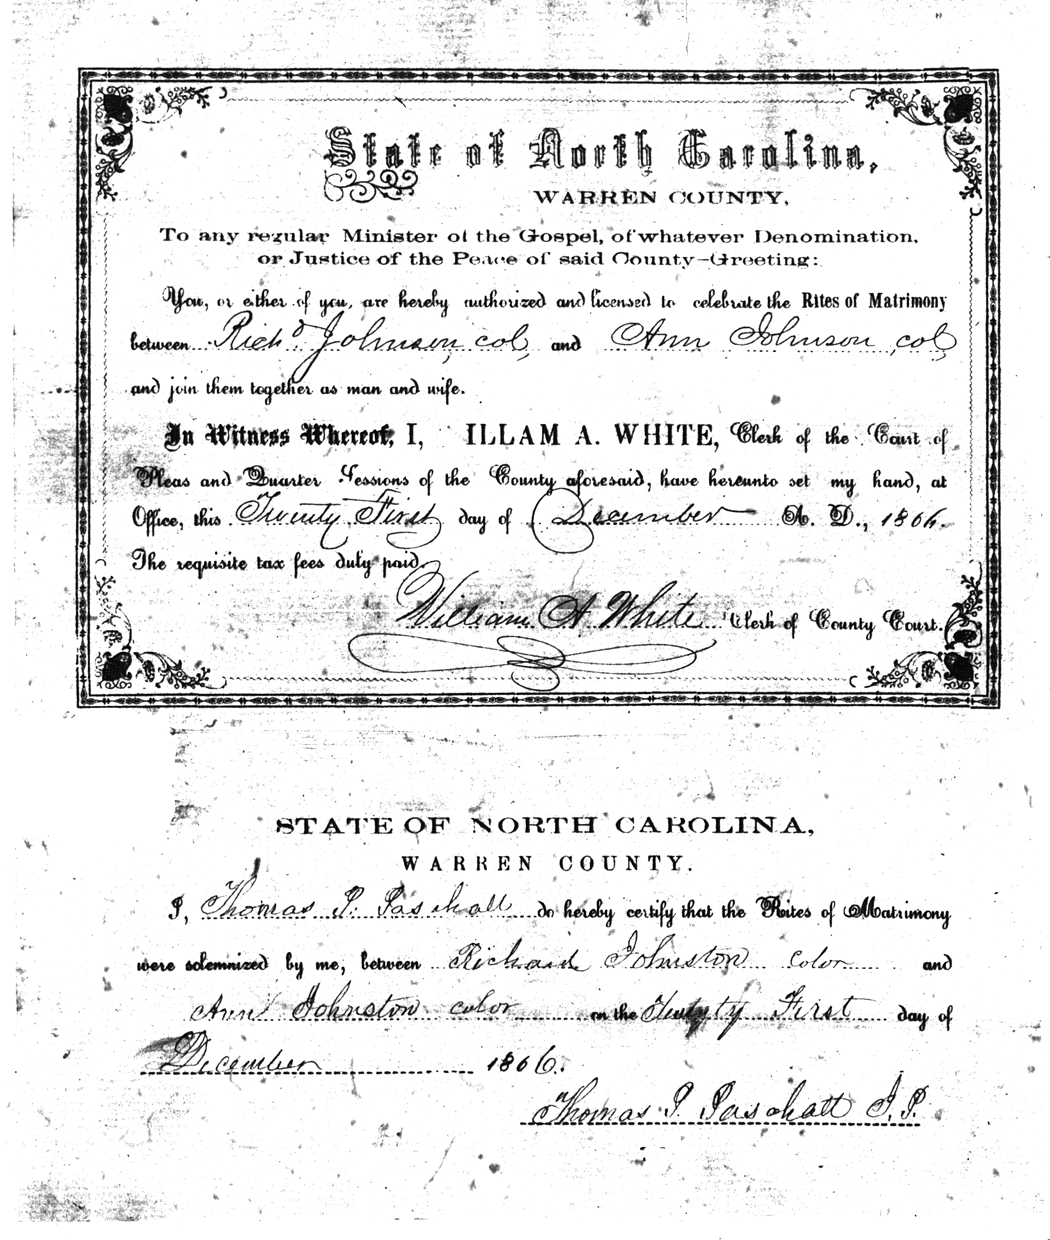 State of North Carolina,
WARREN COUNTY,
To any regular Minister of the Gospel, of whatever Denomination,
or Justice of the Peace of said County—Greeting:
You, or either of you, are hereby authorized and licensed to celebrate the Rites of Matrimony
between Richd Johnson, col, and Ann Johnson, col,
and join them together as man and wife.
In Witness Whereof, I, ILLAM A. WHITE, Clerk of the Court of
Pleas and Quarter Sessions of the County aforesaid, have hereunto set my hand, at
Office, this Twenty First day of December A. D., 1866.
The requisite tax fees duly paid.
William A White Clerk of County Court.
STATE OF NORTH CAROLINA,
WARREN COUNTY.
I, Thomas P. Paschall do hereby certify that the Rites of Matrimony
were solemnized by me, between Richard Johnston color and
Ann Johnston color on the Twenty First day of
December 1866.
Thomas P. Paschall J. P.